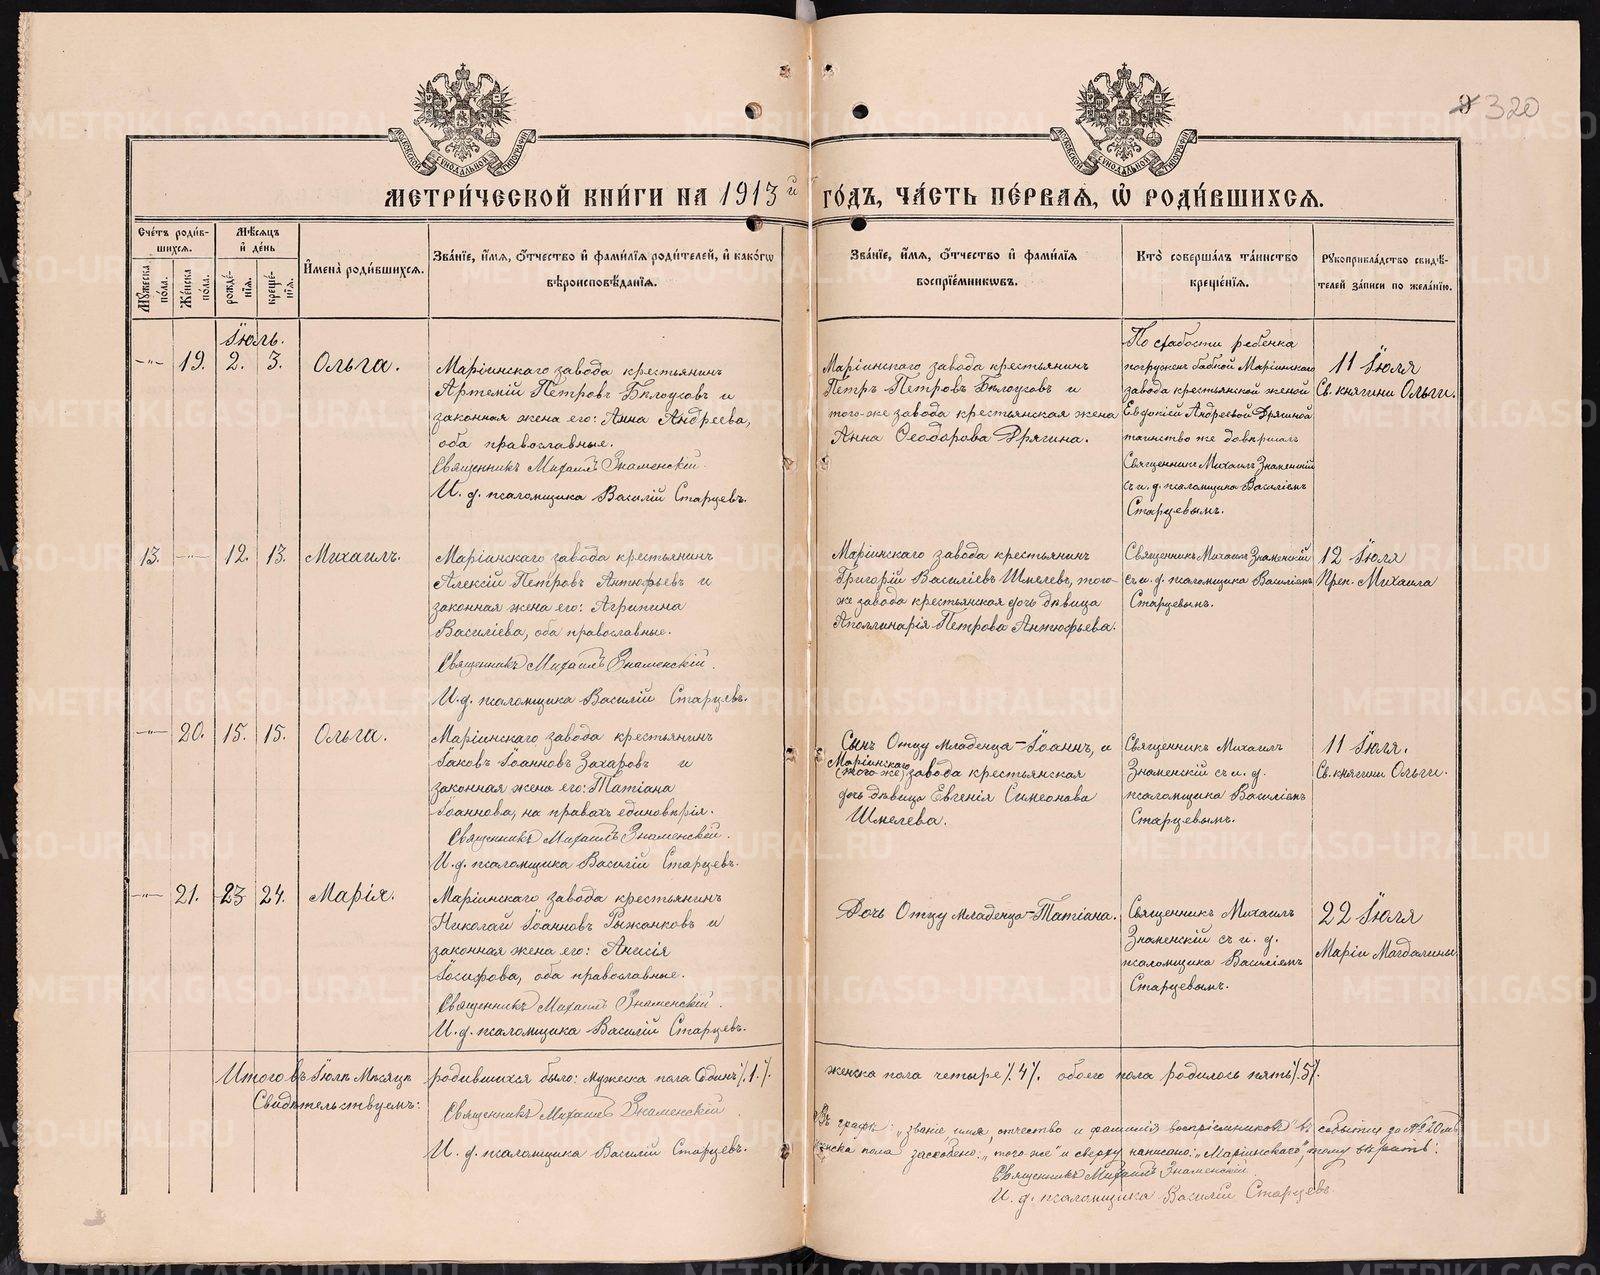 320
МОСКОВСКОЙ СѴНОДАЛЬНОЙ ТИПОГРАФІИ
МОСКОВСКОЙ СѴНОДАЛЬНОЙ ТИПОГРАФІИ
МЕТРИ́ЧЕСКОЙ КНИ́ГИ НА 1913й ГО́ДЪ, ЧА́СТЬ ПЕ́РВАѦ, Ѡ҆ РОДИ́ВШИХСѦ.
Сче́тъ роди́в-
шихсѧ.
Мꙋ́жеска по́ла.
Же́нска по́ла.
Мѣ́сѧцъ
и҆ де́нь
рожде́-
нїѧ.
креще́-
нїѧ.
И҆мена̀ роди́вшихсѧ.
Зва́нїе, и҆́мѧ, ѻ҆́тчество и҆ фами́лїѧ роди́телей, и҆ како́гѡ
вѣроисповѣ́данїѧ.
Зва́нїе, и҆́мѧ, ѻ҆́тчество и҆ фами́лїѧ
воспрїе́мникѡвъ.
Кто̀ соверша́лъ та́инство
креще́нїѧ.
Рꙋкоприкла́дство свидѣ́-
телей за́писи по жела́нїю.
Іюль.
—"— 19. 2. 3. Ольга.
Маріинскаго завода крестьянинъ
Артемій Петровъ Бѣлоусовъ и
законная жена его: Анна Андреева,
оба православные.
Священникъ Михаилъ Знаменскій.
И. д. псаломщика Василій Старцевъ.
Маріинскаго завода крестьянинъ
Петръ Петровъ Бѣлоусовъ и
того-же завода крестьянская жена
Анна Ѳеодорова Дрягина.
По слабости ребенка
погружен бабкой Маріинскаго
завода крестьянской женой
Евдокіей Андреевой Дрягиной
таинство же довершалъ
Священникъ Михаилъ Знаменскій
съ и. д. псаломщика Василіемъ
Старцевымъ.
11 Іюля
Св. княгини Ольги.
13. —"— 12. 13. Михаилъ.
Маріинскаго завода крестьянинъ
Алексій Петровъ Антюфьевъ и
законная жена его: Агрипина
Василіева, оба православные.
Священникъ Михаилъ Знаменскій.
И. д. псаломщика Василій Старцевъ.
Маріинскаго завода крестьянинъ
Григорій Василіевъ Шмелевъ, того-
же завода крестьянская дочь дѣвица
Аполлинарія Петрова Антюфьева.
Священникъ Михаилъ Знаменскій
съ и. д. псаломщика Василіемъ
Старцевымъ.
12 Іюля
Преп. Михаила
—"— 20. 15. 15. Ольга.
Маріинскаго завода крестьянинъ
Іаковъ Іоанновъ Захаровъ и
законная жена его: Татіана
Іоаннова, на правахъ единовѣрія.
Священникъ Михаилъ Знаменскій.
И. д. псаломщика Василій Старцевъ.
Сынъ Отцу младенца – Іоаннъ, и
Маріинскаго
(того-же) завода крестьянская
дочь дѣвица Евгенія Симеонова
Шмелева.
Священникъ Михаилъ
Знаменскій съ и. д.
псаломщика Василіемъ
Старцевымъ.
11 Іюля.
Св. княгини Ольги.
—"— 21. 23 24. Марія.
Маріинскаго завода крестьянинъ
Николай Іоанновъ Рыжанковъ и
законная жена его: Анисія
Іосифова, оба православные.
Священникъ Михаилъ Знаменскій.
И. д. псаломщика Василій Старцевъ.
Дочь Отцу младенца – Татіана.
Священникъ Михаилъ
Знаменскій съ и. д.
псаломщика Василіемъ
Старцевымъ.
22 Іюля
Маріи Магдалины.
Итого въ Іюлѣ мѣсяцѣ родившихся было: мужеска пола Одинъ /.1./. женска пола четыре /.4/. обоего пола родилось пять /.5/.
Свидѣтельствуемъ:
Священникъ Михаилъ Знаменскій.
И. д. псаломщика Василій Старцевъ.
Въ графѣ: „званіе, имя, отчество и фамилія воспріемниковъ" въ событіи за №20мъ
женска пола заскоблено: „того же" и сверху написано: „Маріинскаго", тому вѣрить:
Священникъ Михаилъ Знаменскій
И. д. псаломщика Василій Старцевъ
METRIKI.GASO-URAL.RU